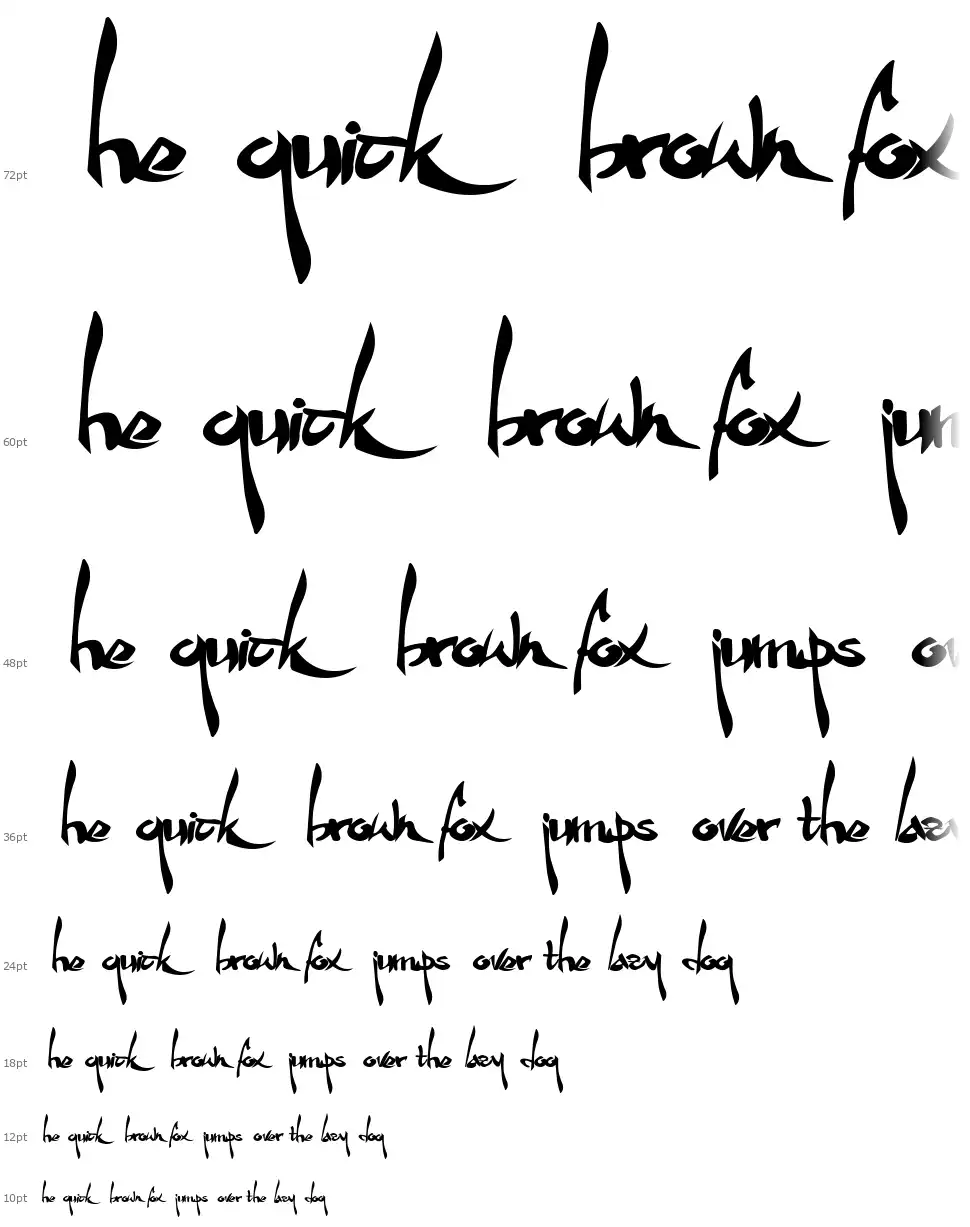 72pt he quick brown fox
60pt he quick brown fox jum
48pt he quick brown fox jumps ov
36pt he quick brown fox jumps over the lazy
24pt he quick brown fox jumps over the lazy dog
18pt he quick brown fox jumps over the lazy dog
12pt he quick brown fox jumps over the lazy dog
10pt he quick brown fox jumps over the lazy dog